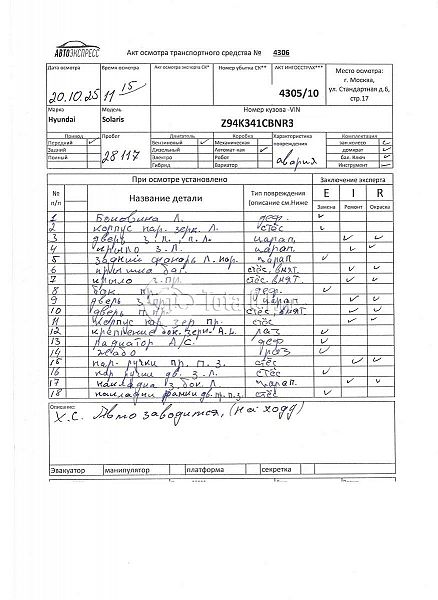 АВТОЭКСПРЕСС
Акт осмотра транспортного средства № 4306
Дата осмотра Время осмотра Акт осмотра эксперта СК* Номер убытка СК** АКТ ИНГОССТРАХ*** Место осмотра:
г. Москва,
ул. Стандартная д.6,
стр.17
20.10.25 11 15 4305/10
Марка Модель Номер кузова -VIN
Hyundai Solaris Z94K341CBNR3
Привод Пробег Двигатель Коробка Характеристика повреждения Комплектация
Передний ✓ Бензиновый ✓ Механическая зап.колесо ✓
Задний 28117 Дизельный Автомат-кая ✓ авария домкрат ✓
Полный Электро Робот бал. Ключ ✓
Гибрид Вариатор Инструмент ✓
При осмотре установлено Заключение эксперта
№ п/п Название детали Тип повреждения (описание см.Ниже E I R
Замена Ремонт Окраска
1 Боковина Л. деф. ✓
2 корпус нар. зерк. Л. стёс ✓
3 дверь з. Л., п. Л. царап. ✓ ✓
4 крыло З. Л. царап. ✓ ✓
5 задний фонарь Л. нар. царап ✓
6 крышка баг. стёс, вмят. ✓ ✓
7 крыло з. пр. стёс, вмят. ✓ ✓
8 бок пр. деф. ✓
9 дверь з. пр. царап ✓ ✓
10 дверь п. пр. стёс, вмят ✓ ✓
11 корпус нар. зер пр. стёс ✓ ✓
12 крепление бок. зерк. Л. ✓
13 радиатор А/С. деф ✓
14 ✓
15 нар. ручки пр. п. з. стёс ✓ ✓
16 нар ручки дв. з. Л. стёс ✓
17 накладка з. бок. Л. царап. ✓ ✓
18 накладки рамки дв. пр. п. з. стёс ✓
Описание:
Х.С. Авто заводится, (на ходу)
Эвакуатор манипулятор платформа секретка